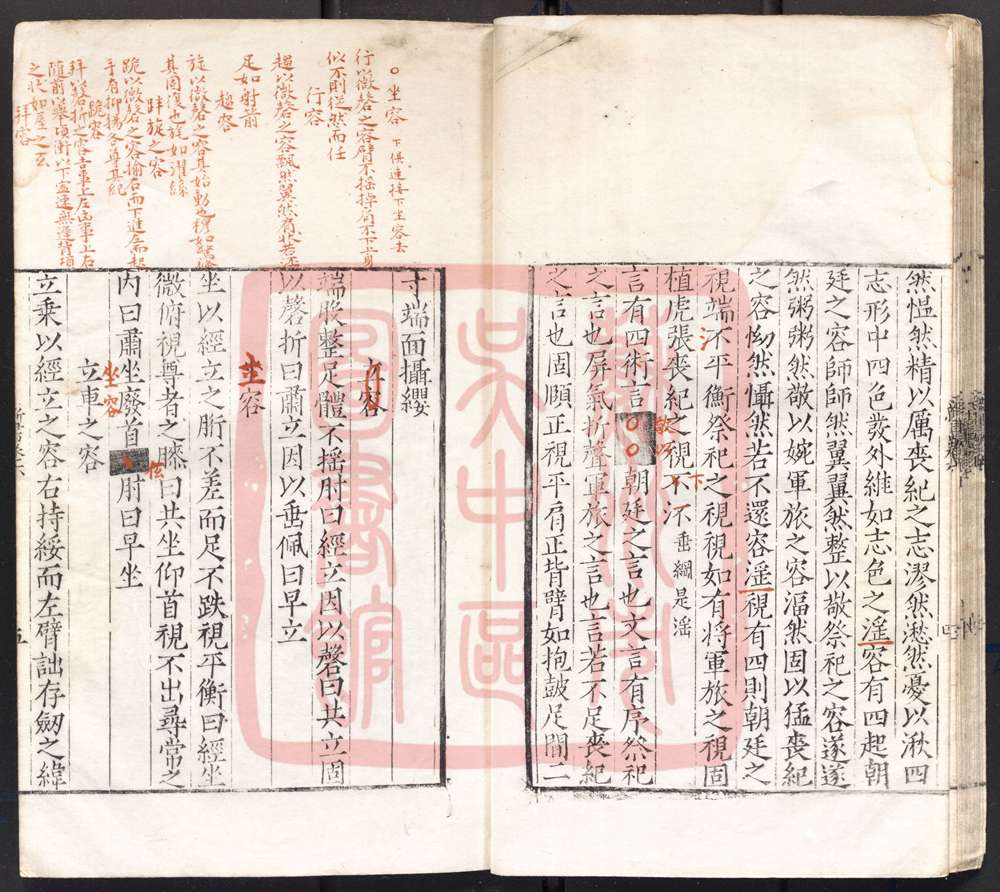 然愠然精以厲喪紀之志漻然愁然憂以湫四
志形中四色發外維如志色之滛容有四起朝
廷之容師師然翼翼然整以敬祭祀之容遂遂
然粥粥然敬以婉軍旅之容湢然固以猛喪紀
之容怮然懾然若不還容滛視有四則朝廷之
視端不平衡祭祀之視視如有將軍旅之視固
植虎張喪紀之視不汴垂綱是滛
下
言有四術言〇〇朝廷之言也文言有序祭祀
之言也屏氣折聲軍旅之言也言若不足喪紀
之言也固頤正視平肩正背臂如抱鼓足間二
四
寸端面攝纓
立容
端股整足體不摇肘曰經立因以磬曰共立固
以磬折曰肅立因以垂佩曰早立
坐容
坐以經立之肵不差而足不跌視平衡曰經坐
微俯視尊者之膝曰共坐仰首視不出尋常之
内曰肅坐廢首肘曰早坐
低
坐容
立車之容
立乗以經立之容右持綏而左臂詘存劒之緯
五
〇坐容 下俱連接下坐容去
行以微磬之容臂不摇掉肩不下上身
似不則從然而任
行容
趨以微磬之容飄然翼然肩狀若流
足如射箭
趨容
旋以微磬之容其始動也穆如驚倏
其固復也旄如濯絲
跘旋之容
跪以微磬之容揄右而下進左而起
手有抑揚各尊其紀
跪容
拜以磬折之容吉事上左凶事上右
隨前以舉項衡以下寧速無遲背項
之狀如屋之玄
拜容
藝術家
吳中區
圖書館